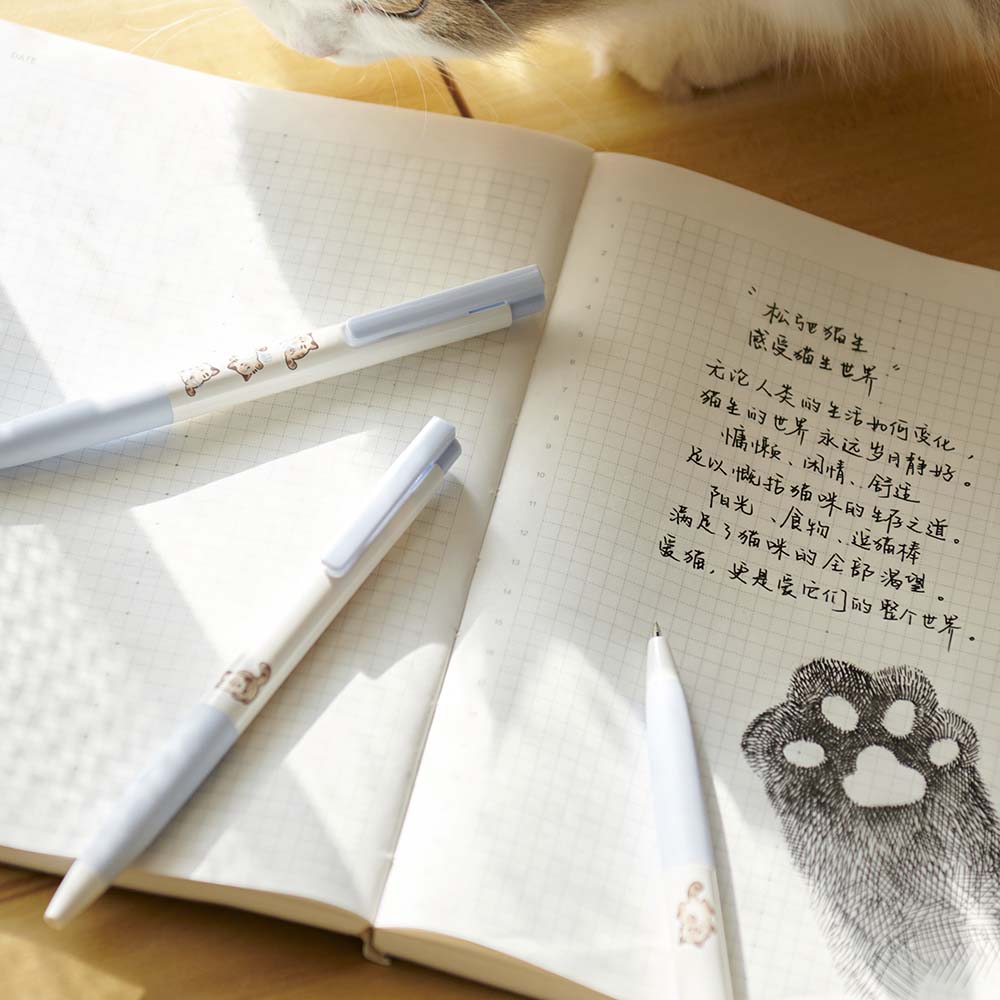 DATE
"松弛猫生
感受猫生世界"
无论人类的生活如何变化，
猫生的世界永远岁月静好。
慵懒、闲情、舒适
足以概括猫咪的生存之道。
阳光、食物、逗猫棒
满足了猫咪的全部渴望。
爱猫，更是爱它们的整个世界。
2
4
5
6
7
8
9
10
11
12
13
14
15